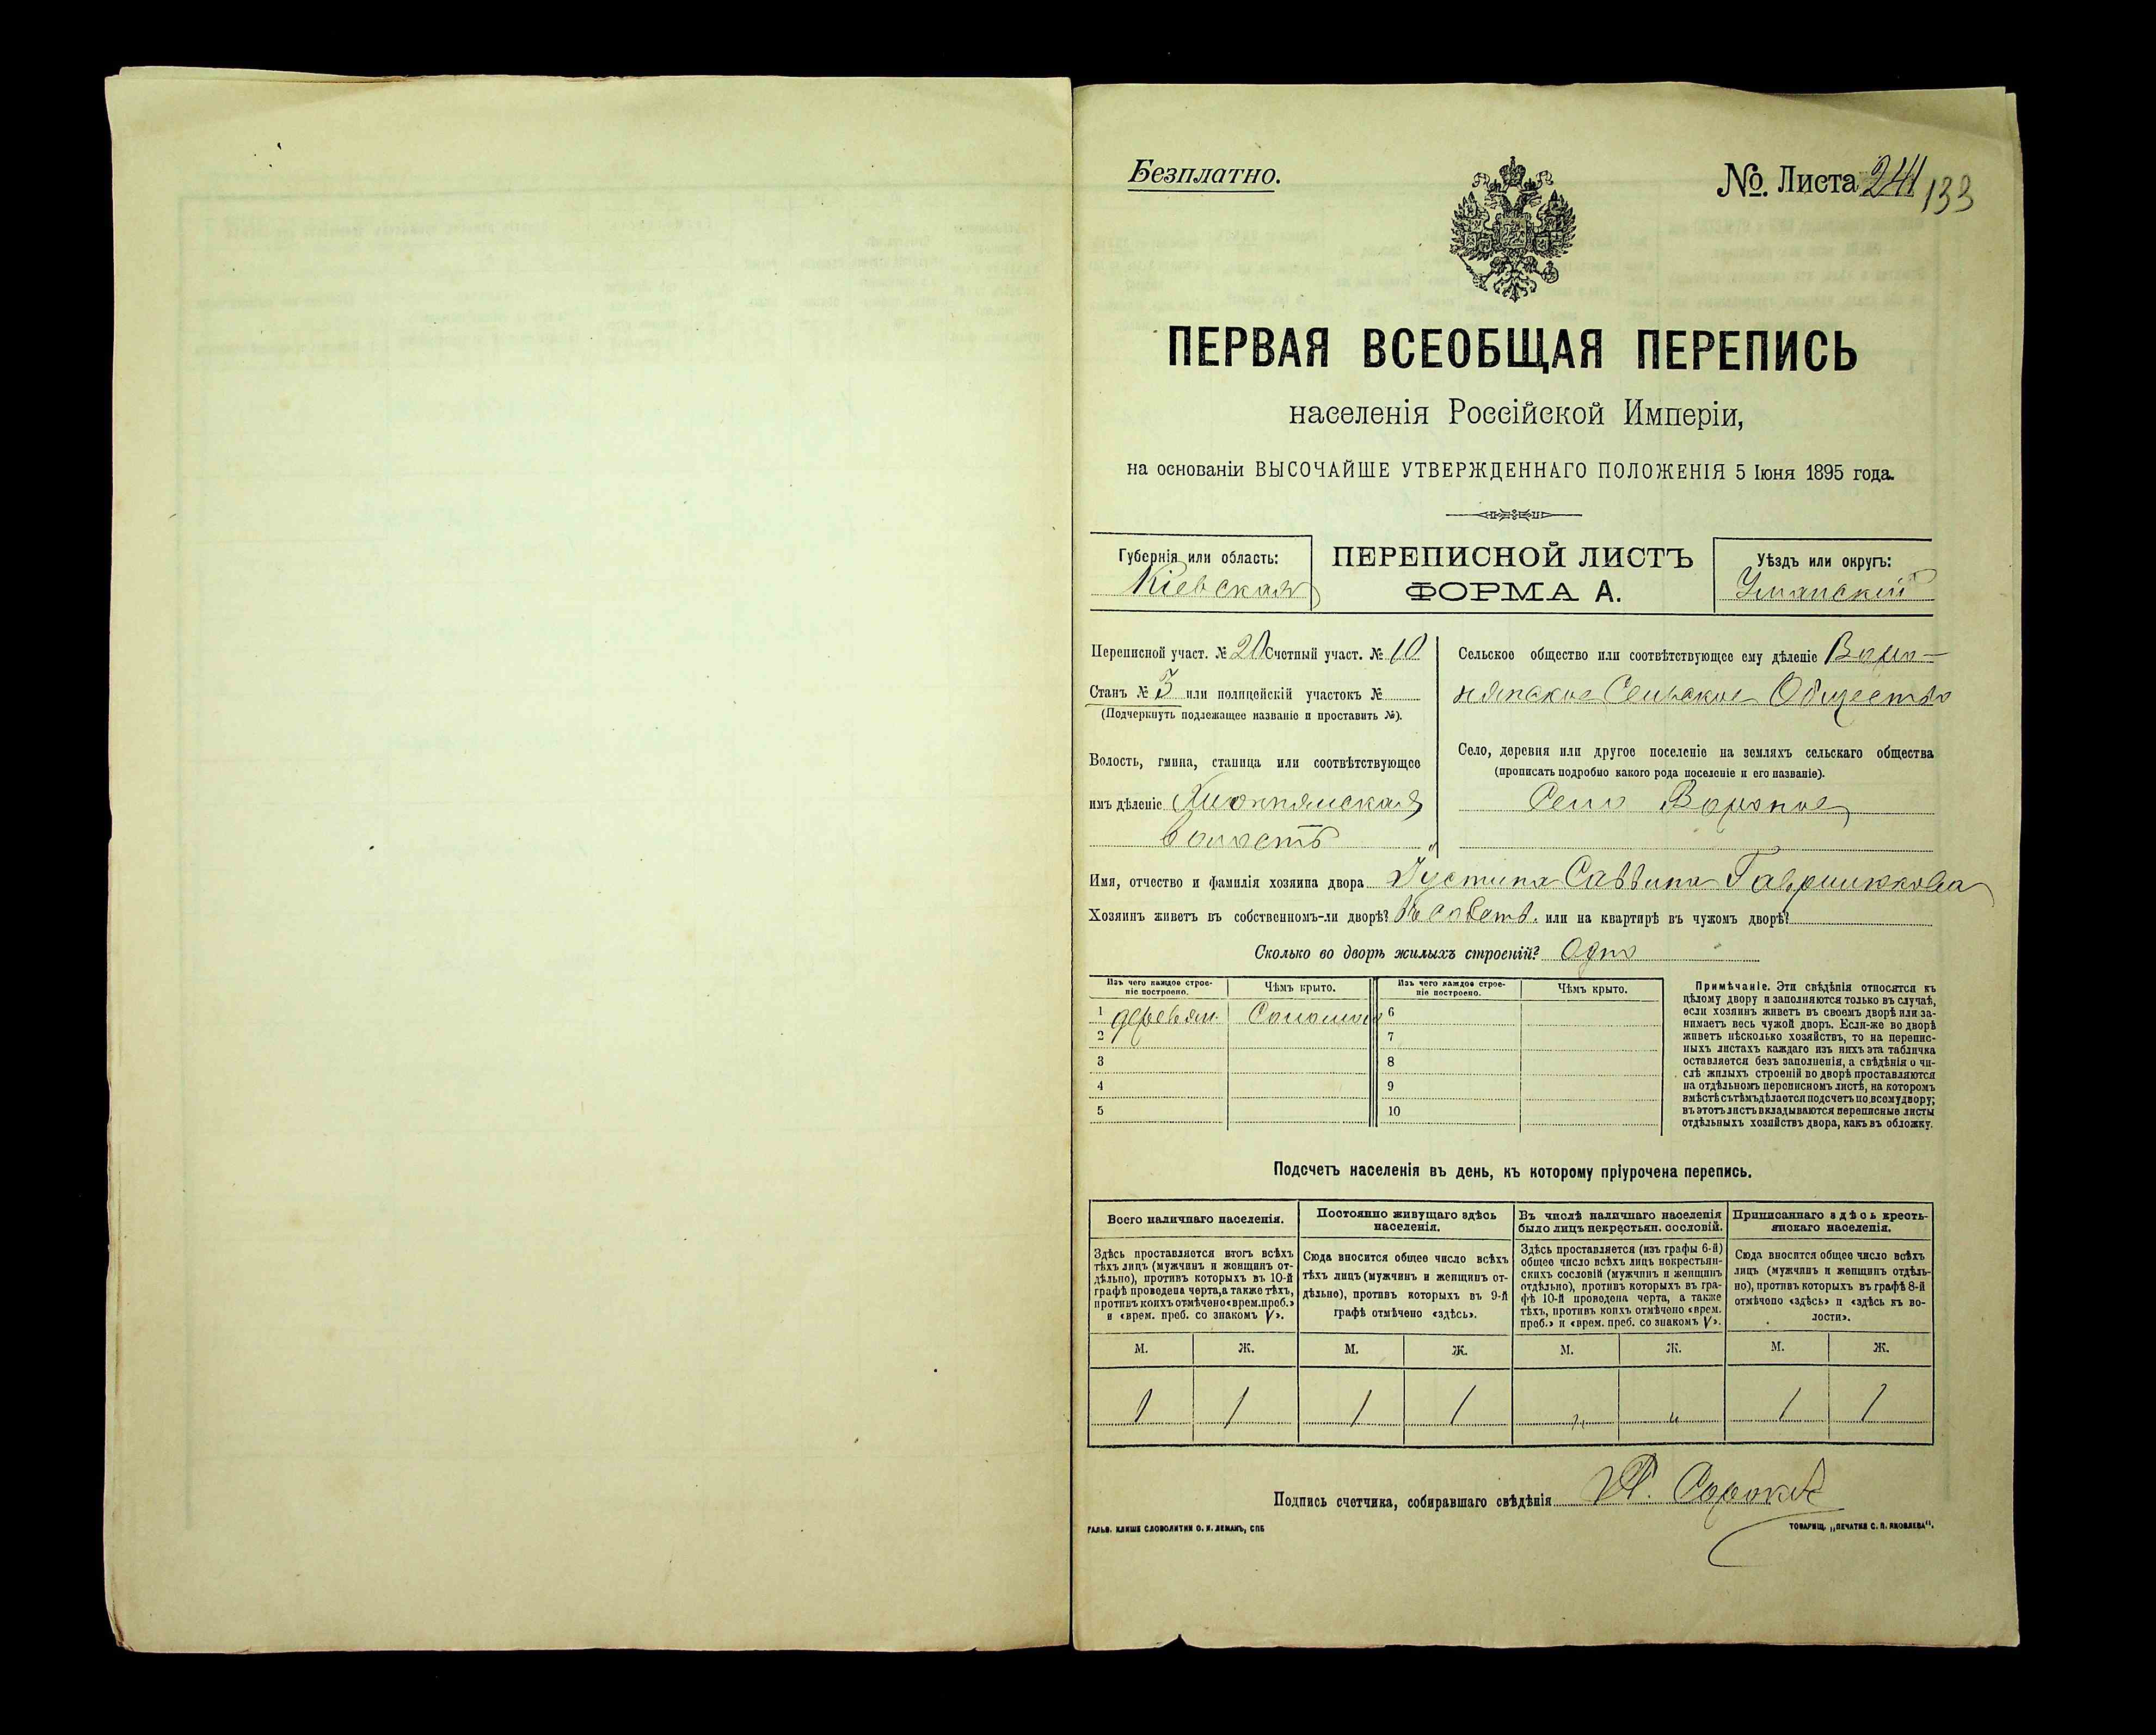 Безплатно.
№ Листа 241 133
ПЕРВАЯ ВСЕОБЩАЯ ПЕРЕПИСЬ
населенія Россійской Имперіи,
на основаніи ВЫСОЧАЙШЕ УТВЕРЖДЕННАГО ПОЛОЖЕНІЯ 5 Іюня 1895 года.
Губернія или область:
Кіевская
ПЕРЕПИСНОЙ ЛИСТЪ
ФОРМА А.
Уѣздъ или округъ:
Уманскій
Переписной участ. № 20 Счетный участ. № 10
Станъ № 3 или полицейскій участокъ №
(Подчеркнуть подлежащее названіе и проставить №).
Волость, гмина, станица или соотвѣтствующее
имъ дѣленіе
волость
Сельское общество или соотвѣтствующее ему дѣленіе
Сельское Общество
Село, деревня или другое поселеніе на земляхъ сельскаго общества
(прописать подробно какого рода поселеніе и его названіе).
Село Вороное
Имя, отчество и фамилія хозяина двора Іустина Саввина
Хозяинъ живетъ въ собственномъ-ли дворѣ? Въ собств. или на квартирѣ въ чужомъ дворѣ?
Сколько во дворѣ жилыхъ строеній? Одно
Изъ чего каждое строе-
ніе построено.
Чѣмъ крыто.
Изъ чего каждое строе-
ніе построено.
Чѣмъ крыто.
1 деревян. Соломою 6
2 7
3 8
4 9
5 10
Примѣчаніе. Эти свѣдѣнія относятся къ
цѣлому двору и заполняются только въ случаѣ,
если хозяинъ живетъ въ своемъ дворѣ или за-
нимаетъ весь чужой дворъ. Если-же во дворѣ
живетъ нѣсколько хозяйствъ, то на перепис-
ныхъ листахъ каждаго изъ нихъ эта табличка
оставляется безъ заполненія, а свѣдѣнія о чи-
слѣ жилыхъ строеній во дворѣ проставляются
на отдѣльномъ переписномъ листѣ, на которомъ
вмѣстѣ съ тѣмъ дѣлается подсчетъ по всему двору;
въ этотъ листъ вкладываются переписные листы
отдѣльныхъ хозяйствъ двора, какъ въ обложку.
Подсчетъ населенія въ день, къ которому пріурочена перепись.
Всего наличнаго населенія.
Здѣсь проставляется итогъ всѣхъ
тѣхъ лицъ (мужчинъ и женщинъ от-
дѣльно), противъ которыхъ въ 10-й
графѣ проведена черта, а также тѣхъ,
противъ коихъ отмѣчено «врем. преб.»
и «врем. преб. со знакомъ V».
Постоянно живущаго здѣсь
населенія.
Сюда вносится общее число всѣхъ
тѣхъ лицъ (мужчинъ и женщинъ от-
дѣльно), противъ которыхъ въ 9-й
графѣ отмѣчено «здѣсь».
Въ числѣ наличнаго населенія
было лицъ некрестьян. сословій.
Здѣсь проставляется (изъ графы 6-й)
общее число всѣхъ лицъ некрестьян-
скихъ сословій (мужчинъ и женщинъ
отдѣльно), противъ которыхъ въ гра-
фѣ 10-й проведена черта, а также
тѣхъ, противъ коихъ отмѣчено «врем.
преб.» и «врем. преб. со знакомъ V».
Приписаннаго здѣсь кресть-
янскаго населенія.
Сюда вносится общее число всѣхъ
лицъ (мужчинъ и женщинъ отдѣль-
но), противъ которыхъ въ графѣ 8-й
отмѣчено «здѣсь» и «здѣсь къ во-
лости».
М. Ж. М. Ж. М. Ж. М. Ж.
1 1 1 1 " " 1 1
Подпись счетчика, собиравшаго свѣдѣнія
ГАЛЬВ. КЛИШЕ СЛОВОЛИТНИ О. И. ЛЕМАНЪ, СПБ
ТОВАРИЩ. „ПЕЧАТНЯ С. П. ЯКОВЛЕВА".